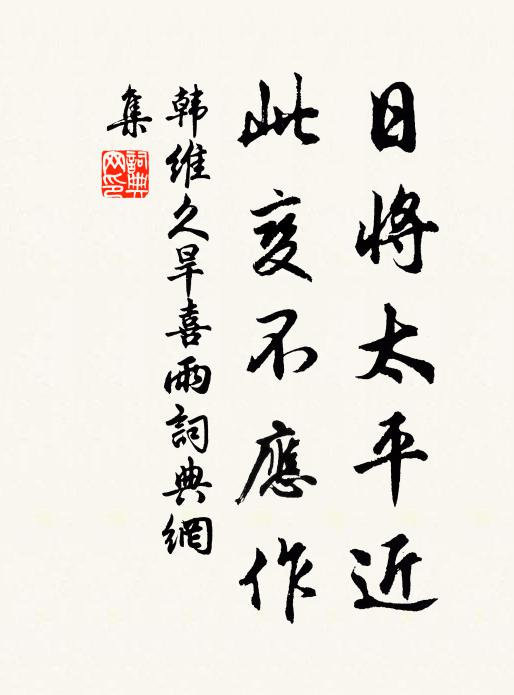 日将太平近
此变不應作
韩维久旱喜雨詞典網
集
詞典
网印